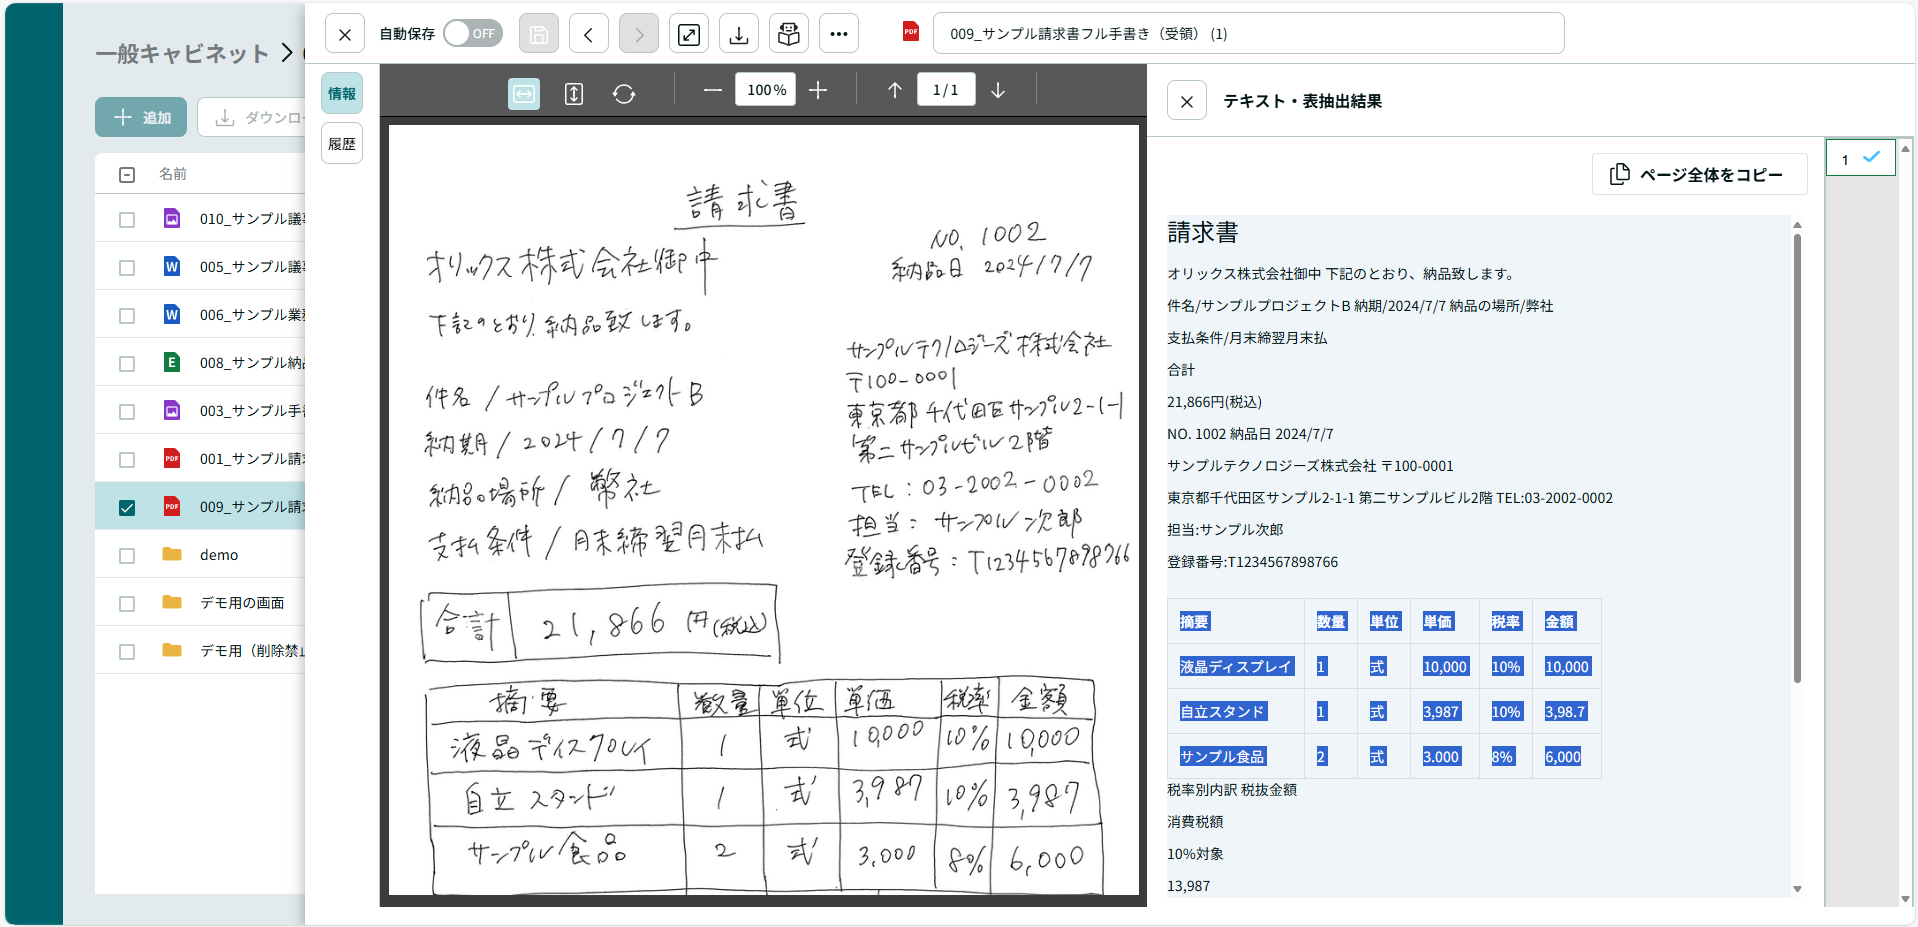 一般キャビネット
追加
ダウンロー
名前
010_サンプル議
005_サンプル議
006_サンプル業
008_サンプル納
003_サンプル手
001_サンプル請
009_サンプル請
demo
デモ用の画面
デモ用（削除禁止
自動保存 OFF
PDF 009_サンプル請求書フル手書き（受領） (1)
情報
履歴
100% 1/1
請求書
NO. 1002
オリックス株式会社御中
納品日 2024/7/7
下記のとおり、納品致します。
サンプルテクノロジーズ株式会社
〒100-0001
件名/サンプルプロジェクトB
東京都千代田区サンプル2-1-1
納期/2024/7/7
第二サンプルビル2階
納品の場所/弊社
TEL:03-2002-0002
担当:サンプル次郎
支払条件/月末締翌月末払
登録番号:T1234567898766
合計 21,866円(税込)
摘要 数量 単位 単価 税率 金額
液晶ディスプレイ 1 式 10,000 10% 10,000
自立スタンド 1 式 3,987 10% 3,987
サンプル食品 2 式 3,000 8% 6,000
テキスト・表抽出結果
ページ全体をコピー
1
請求書
オリックス株式会社御中 下記のとおり、納品致します。
件名/サンプルプロジェクトB 納期/2024/7/7 納品の場所/弊社
支払条件/月末締翌月末払
合計
21,866円(税込)
NO. 1002 納品日 2024/7/7
サンプルテクノロジーズ株式会社 〒100-0001
東京都千代田区サンプル2-1-1 第二サンプルビル2階 TEL:03-2002-0002
担当:サンプル次郎
登録番号:T1234567898766
摘要 数量 単位 単価 税率 金額
液晶ディスプレイ 1 式 10,000 10% 10,000
自立スタンド 1 式 3,987 10% 3,98.7
サンプル食品 2 式 3.000 8% 6,000
税率別内訳 税抜金額
消費税額
10%対象
13,987